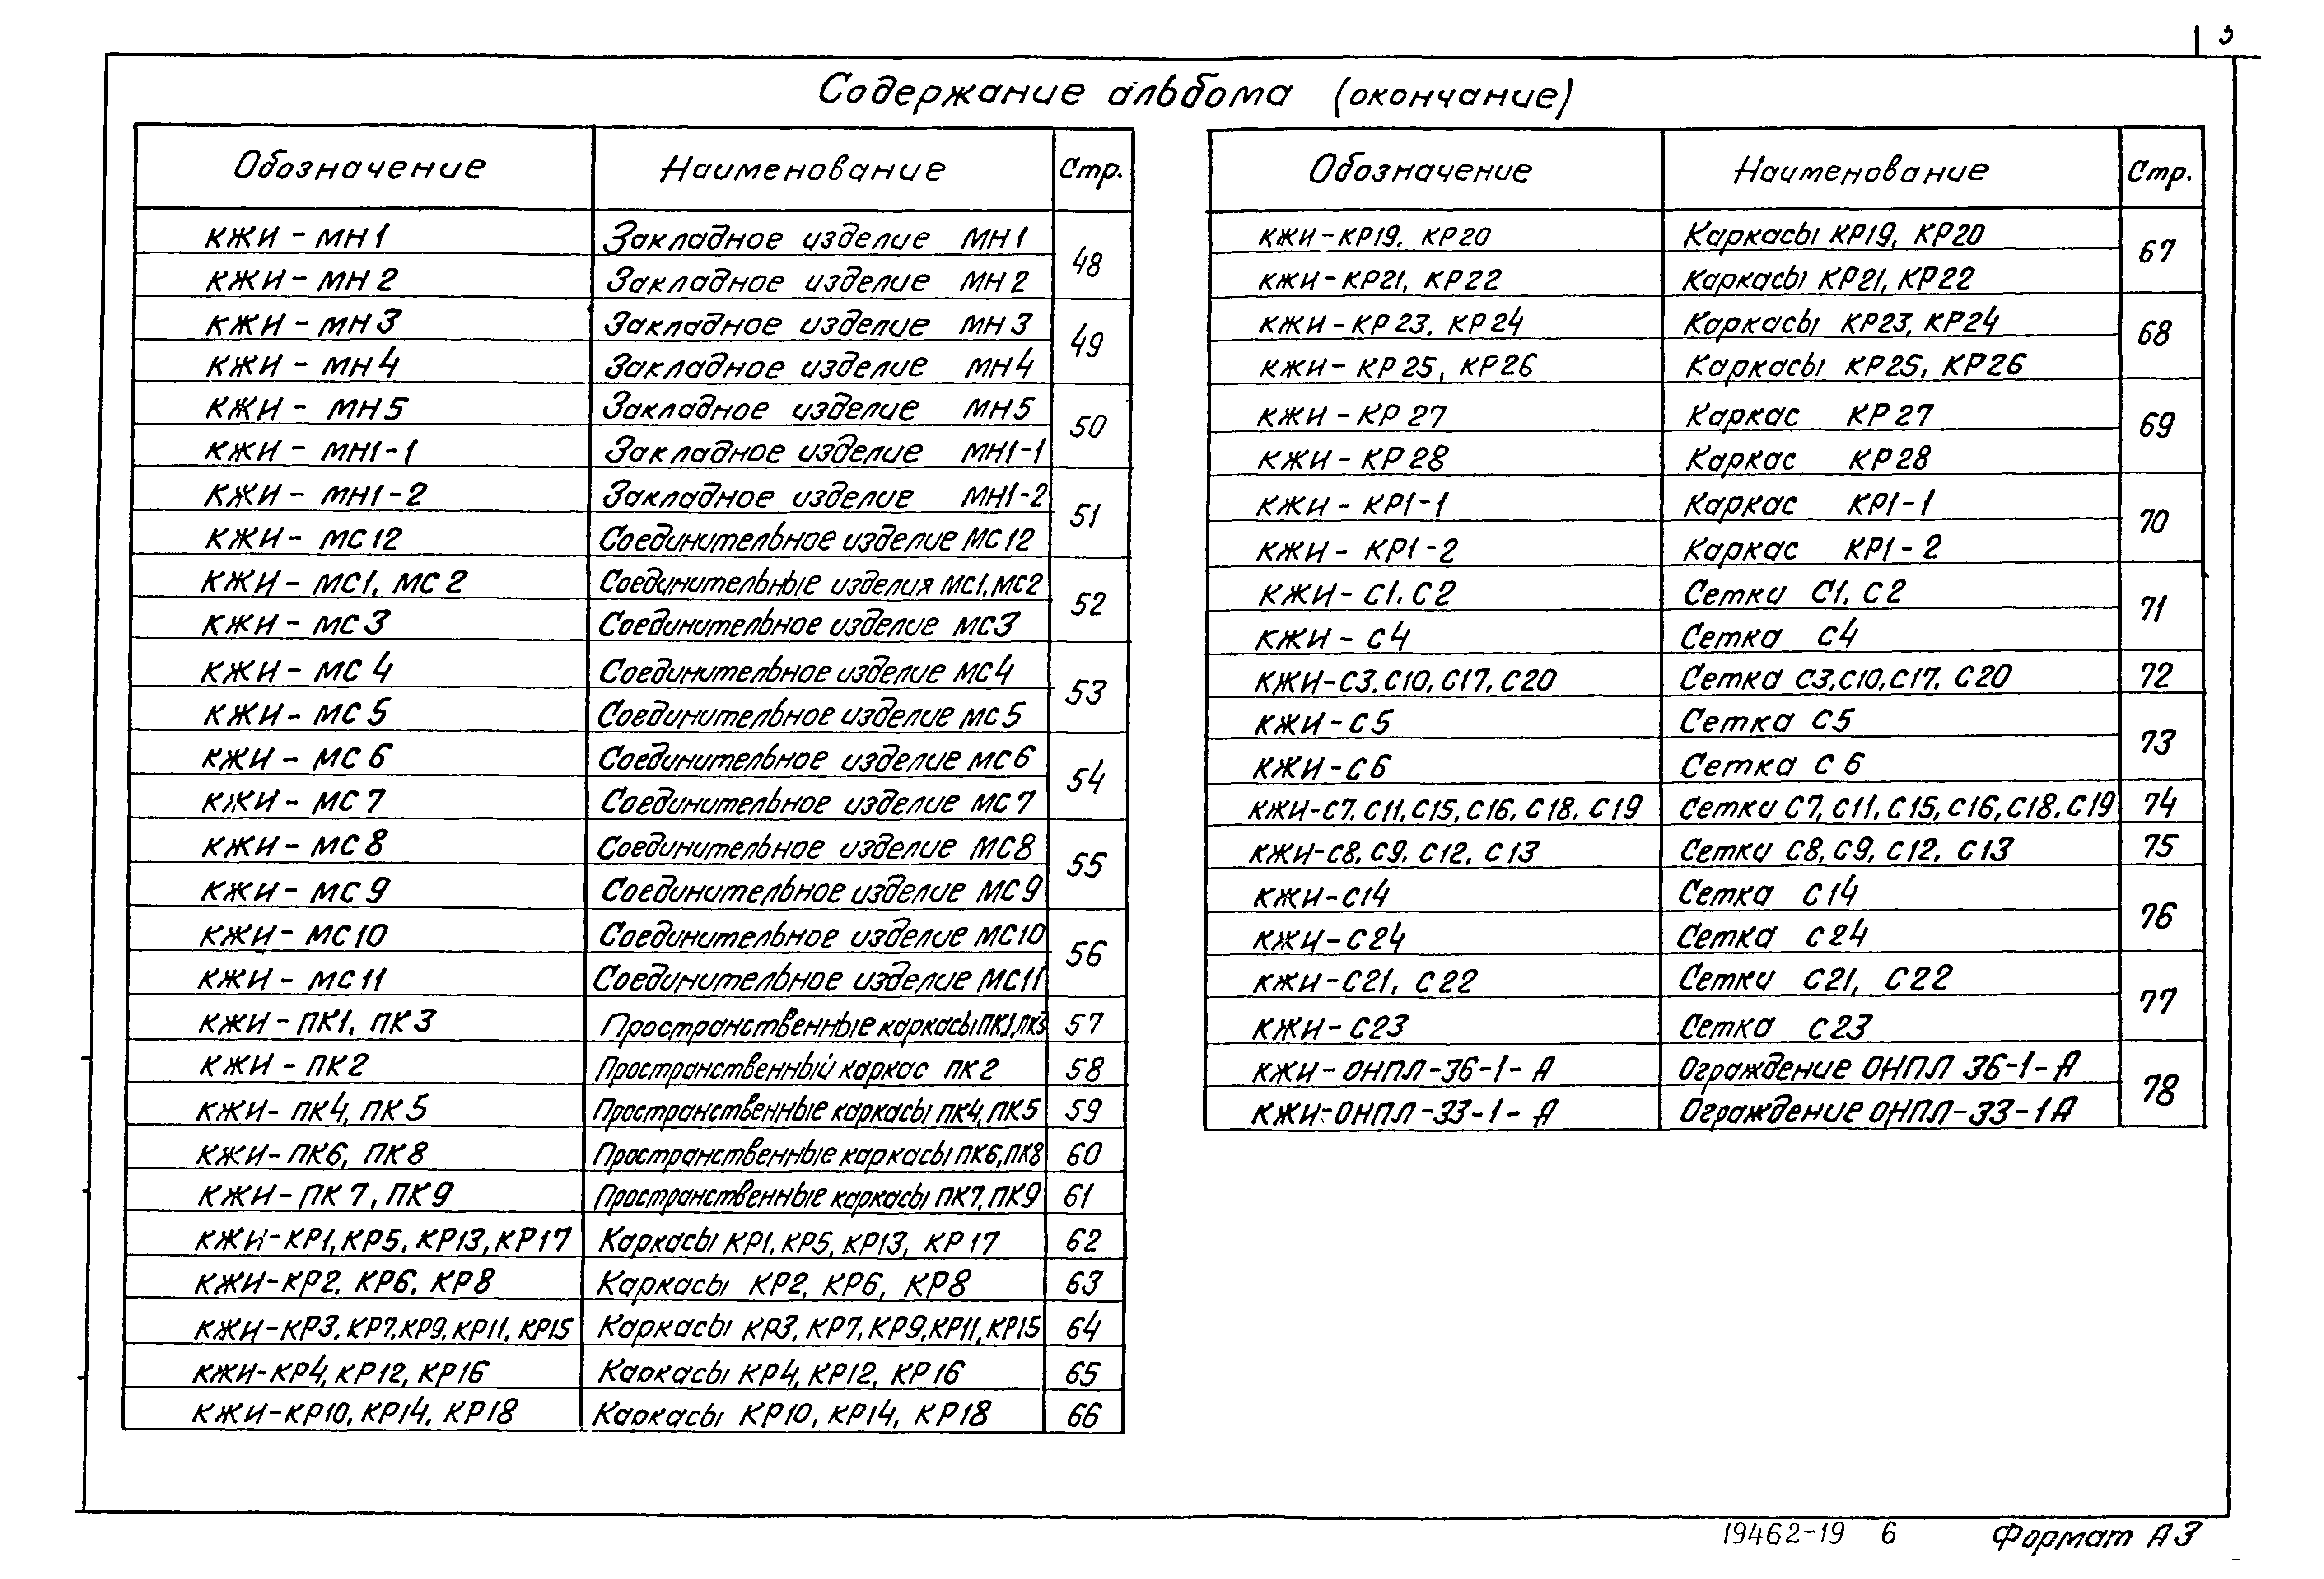 5
Содержание альбома (окончание)
Обозначение Наименование Стр.
КЖИ - МН1 Закладное изделие МН1 48
КЖИ - МН2 Закладное изделие МН2
КЖИ - МН3 Закладное изделие МН3 49
КЖИ - МН4 Закладное изделие МН4
КЖИ - МН5 Закладное изделие МН5 50
КЖИ - МН1-1 Закладное изделие МН1-1
КЖИ - МН1-2 Закладное изделие МН1-2 51
КЖИ - МС12 Соединительное изделие МС12
КЖИ - МС1, МС2 Соединительные изделия МС1, МС2 52
КЖИ - МС3 Соединительное изделие МС3
КЖИ - МС4 Соединительное изделие МС4 53
КЖИ - МС5 Соединительное изделие МС5
КЖИ - МС6 Соединительное изделие МС6 54
КЖИ - МС7 Соединительное изделие МС7
КЖИ - МС8 Соединительное изделие МС8 55
КЖИ - МС9 Соединительное изделие МС9
КЖИ - МС10 Соединительное изделие МС10 56
КЖИ - МС11 Соединительное изделие МС11
КЖИ - ПК1, ПК3 Пространственные каркасы ПК1, ПК3 57
КЖИ - ПК2 Пространственный каркас ПК2 58
КЖИ - ПК4, ПК5 Пространственные каркасы ПК4, ПК5 59
КЖИ - ПК6, ПК8 Пространственные каркасы ПК6, ПК8 60
КЖИ - ПК7, ПК9 Пространственные каркасы ПК7, ПК9 61
КЖИ-КР1, КР5, КР13, КР17 Каркасы КР1, КР5, КР13, КР17 62
КЖИ-КР2, КР6, КР8 Каркасы КР2, КР6, КР8 63
КЖИ-КР3, КР7, КР9, КР11, КР15 Каркасы КР3, КР7, КР9, КР11, КР15 64
КЖИ-КР4, КР12, КР16 Каркасы КР4, КР12, КР16 65
КЖИ-КР10, КР14, КР18 Каркасы КР10, КР14, КР18 66
Обозначение Наименование Стр.
КЖИ-КР19, КР20 Каркасы КР19, КР20 67
КЖИ-КР21, КР22 Каркасы КР21, КР22
КЖИ-КР23, КР24 Каркасы КР23, КР24 68
КЖИ-КР25, КР26 Каркасы КР25, КР26
КЖИ-КР27 Каркас КР27 69
КЖИ-КР28 Каркас КР28
КЖИ - КР1-1 Каркас КР1-1 70
КЖИ - КР1-2 Каркас КР1-2
КЖИ - С1, С2 Сетки С1, С2 71
КЖИ - С4 Сетка С4
КЖИ-С3, С10, С17, С20 Сетка С3, С10, С17, С20 72
КЖИ-С5 Сетка С5 73
КЖИ-С6 Сетка С6
КЖИ-С7, С11, С15, С16, С18, С19 Сетки С7, С11, С15, С16, С18, С19 74
КЖИ-С8, С9, С12, С13 Сетки С8, С9, С12, С13 75
КЖИ-С14 Сетка С14 76
КЖИ-С24 Сетка С24
КЖИ-С21, С22 Сетки С21, С22 77
КЖИ-С23 Сетка С23
КЖИ-ОНПЛ-36-1-А Ограждение ОНПЛ 36-1-А 78
КЖИ-ОНПЛ-33-1-А Ограждение ОНПЛ-33-1А
19462-19 6 Формат А3